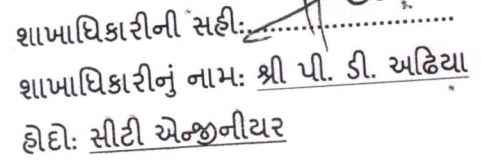 શાખાધિકારીની સહી:..............................
શાખાધિકારીનું નામ: શ્રી પી. ડી. અઢિયા
હોદો: સીટી એન્જીનીયર